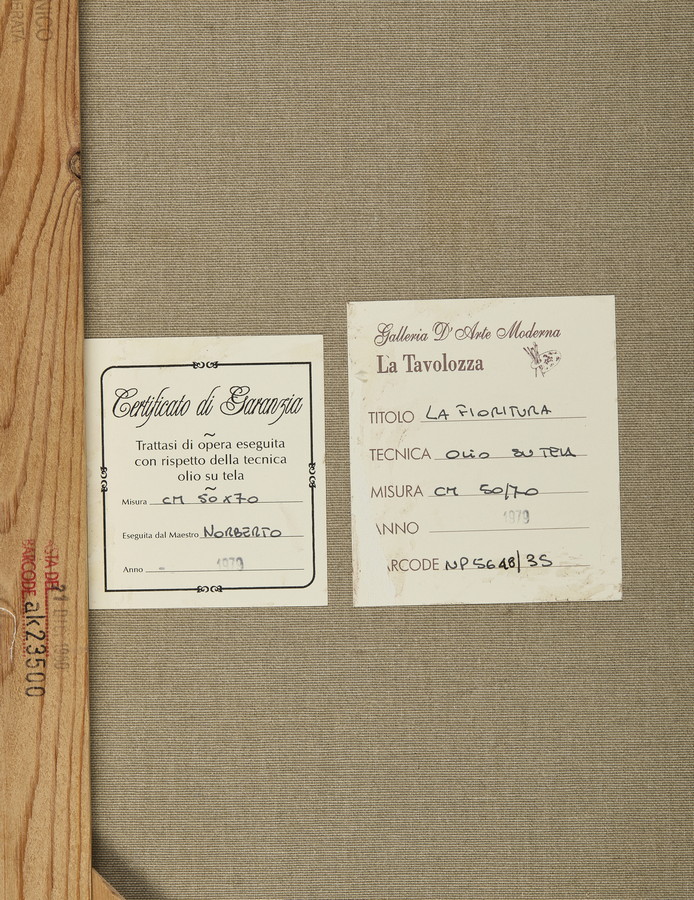 NICO
ERATA
Certificato di Garanzia
~
Trattasi di opera eseguita
con rispetto della tecnica
olio su tela
~
Misura CM 50x70
Eseguita dal Maestro NORBERTO
Anno - 1979
Galleria D'Arte Moderna
La Tavolozza
TITOLO LA FIORITURA
TECNICA OLIO SU TELA
MISURA CM 50/70
ANNO 1979
ARCODE NP5648/35
BARCODE ak23500